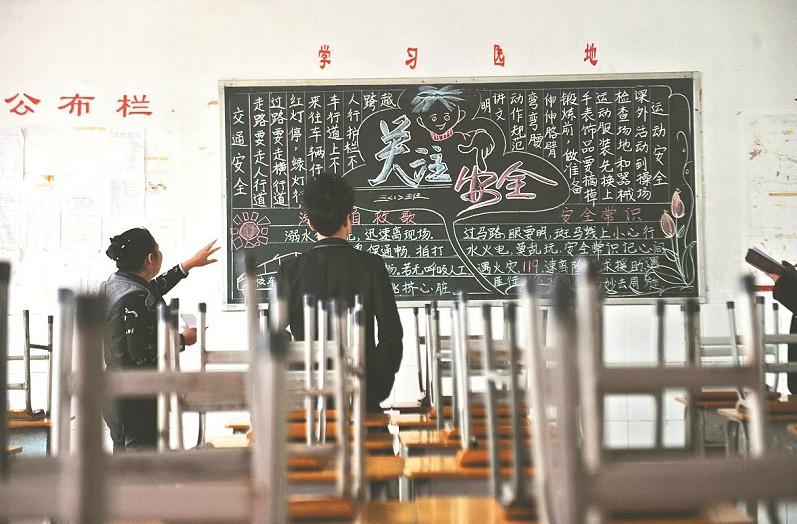 学习园地
公布栏
交通安全
走路要走人行道
过路要走横行道
红灯停,绿灯行
来往车辆行
车行道上不
人行护栏不
跨越
关注安全
三(1)班
运动安全
课外活动到操场
检查场地和器械
运动服装先换上
手表饰品要摘掉
锻炼前,做准备
伸伸胳臂
弯弯腰
动作规范
讲文
明
自救歌
溺水 迅速离现场.
保通畅,拍打
畅.若无呼吸人工
挤心脏.
安全常识
过马路,眼要明,斑马线上小心行
水火电,莫乱玩,安全常识记心间
遇火灾,119,速离 求援助